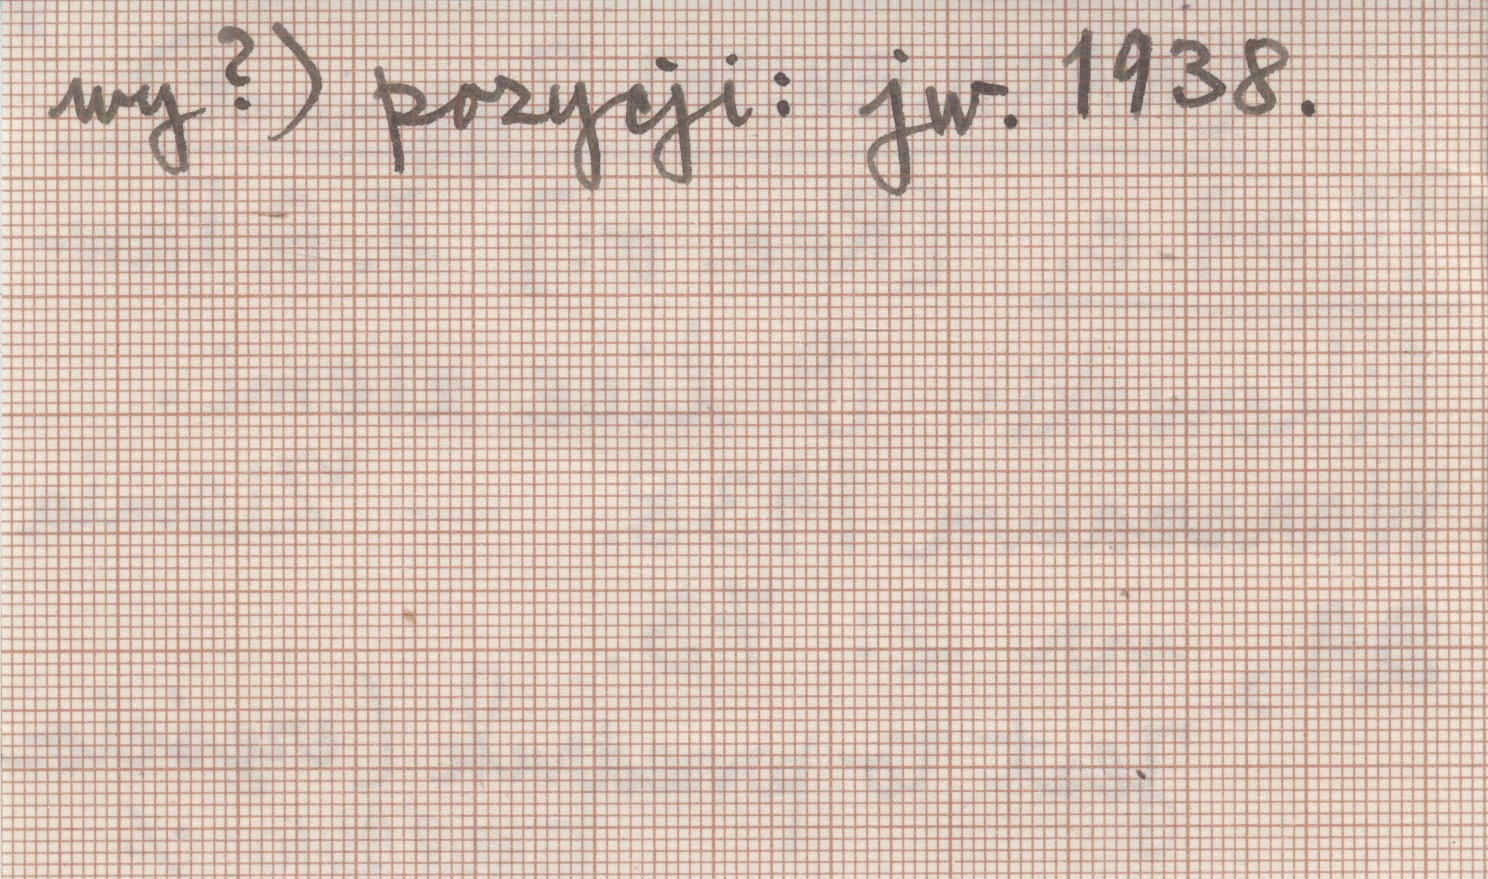 wy?) pozycji: jw. 1938.